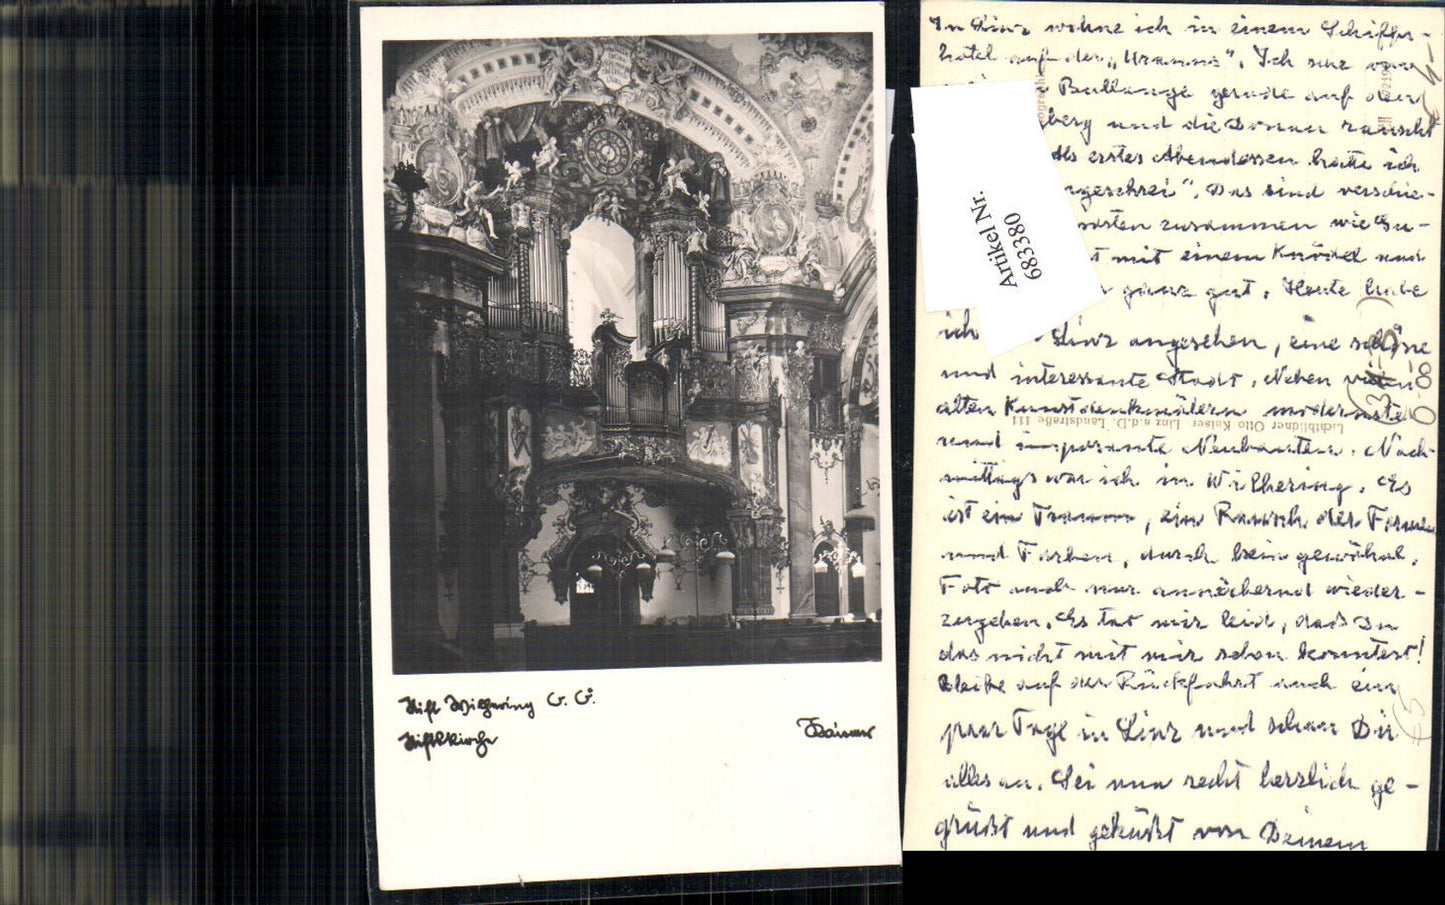 Stift Wilhering O. Ö.
Stiftskirche
Kaiser
In Linz wohne ich in einem Schiffs-
hotel auf der „Uranus". Ich sehe von
Bullauge gerade auf den
berg und die Donau rauscht
Als erstes Abendessen hatte ich
ngeschrei". Das sind verschie-
zusammen wie Gu-
t mit einem Knödel und
ganz gut. Heute habe
ich Linz angesehen, eine schöne
und interessante Stadt. Neben vielen
alten Kunstdenkmälern modernste
und imposante Neubauten. Nach-
mittags war ich in Wilhering. Es
ist ein Traum, ein Rausch der Formen
und Farben, durch kein gewöhnl.
Foto auch nur annähernd wieder-
zugeben. Es tat mir leid, daß Du
das nicht mit mir sehen konntest!
Bleibe auf der Rückfahrt auch ein
paar Tage in Linz und schau Dir
alles an. Sei nun recht herzlich ge-
grüßt und geküßt von Deinem
Artikel Nr.
683380
Lichtbildner Otto Kaiser Linz a.d.D. Landstraße 111